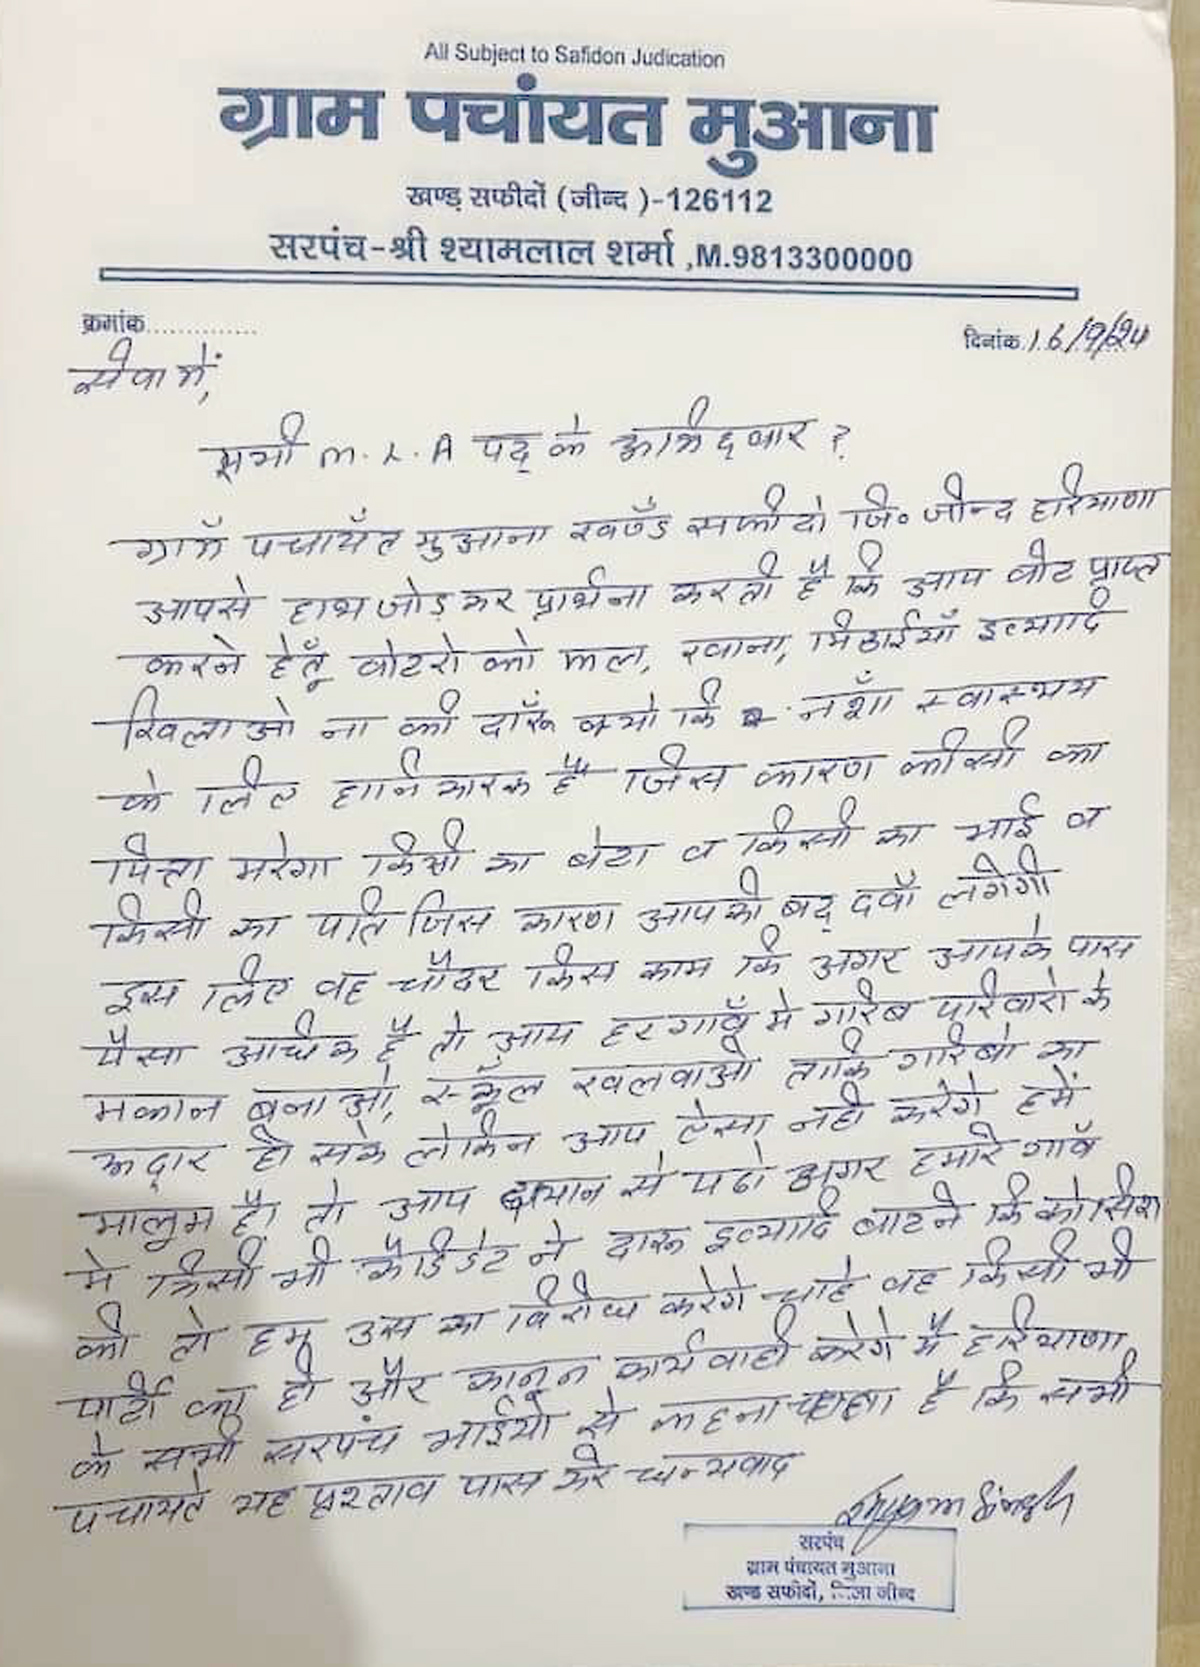 All Subject to Safidon Judication
ग्राम पचांयत मुआना
खण्ड़ सफीदों (जीन्द )-126112
सरपंच-श्री श्यामलाल शर्मा ,M.9813300000
क्रमांक..............
दिनांक.16/9/24
सेवा में,
सभी M.L.A पद् के उम्मिद्वार ?
गाम पचायॅत मुआना खण्डॅ सफीदो जि॰ जीन्द हरियाणा
आपसे हाथ जोड़ कर प्रार्थना करती है कि आप वोट प्राप्त
करने हेतूँ वोटरो को फल, खाना, मिठाईयाँ इत्यादि
खिलाओ ना की दाँरू क्यो कि नशाँ स्वास्थय
के लिए हानिकारक है जिस कारण कीसी का
पित्ता मरेगा किसी का बेटा व किसी का भाई व
किसी का पति जिस कारण आपकी बद् दवाँ लगेगी
इस लिए वह चौदर किस काम कि अगर आपके पास
पैसा अधिक है तो आप हर गाँव मे गरिब परिवारो के
मकान बनाओ, स्कूँल खलवाओ ताकि गरिबो का
हो सके लेकिन आप ऐसा नही करेगे हमें
मालुम है। तो आप ध्यान से पढो अगर हमारे गाँव
मे किसी भी कैडिडेट ने दारू इत्यादि बाटने कि कोसिश
की तो हम उस का विरोध करेगे चाहे वह किसी भी
पार्टी का हो और कानून कार्यवाही करेगे मै हरियाणा
के सभी सरपंच भाईयो से कहना चाहता है कि सभी
पचायते यह प्रस्ताव पास करे धन्यवाद
सरपंच
ग्राम पंचायत मुआना
खण्ड सफीदों, जिला जीन्द